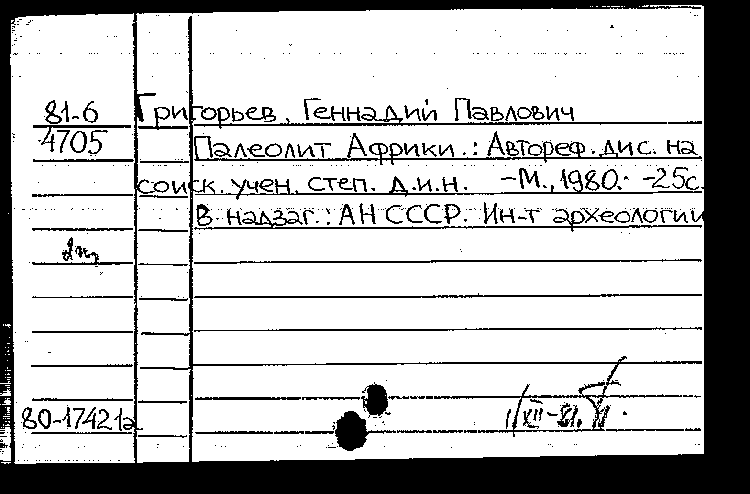 81-6 Григорьев, Геннадий Павлович
4705 Палеолит Африки.: Автореф. дис. на
соиск. учен. степ. д.и.н. -М., 1980. -25с.
В надзаг.: АН СССР. Ин-т археологии
80-17421а